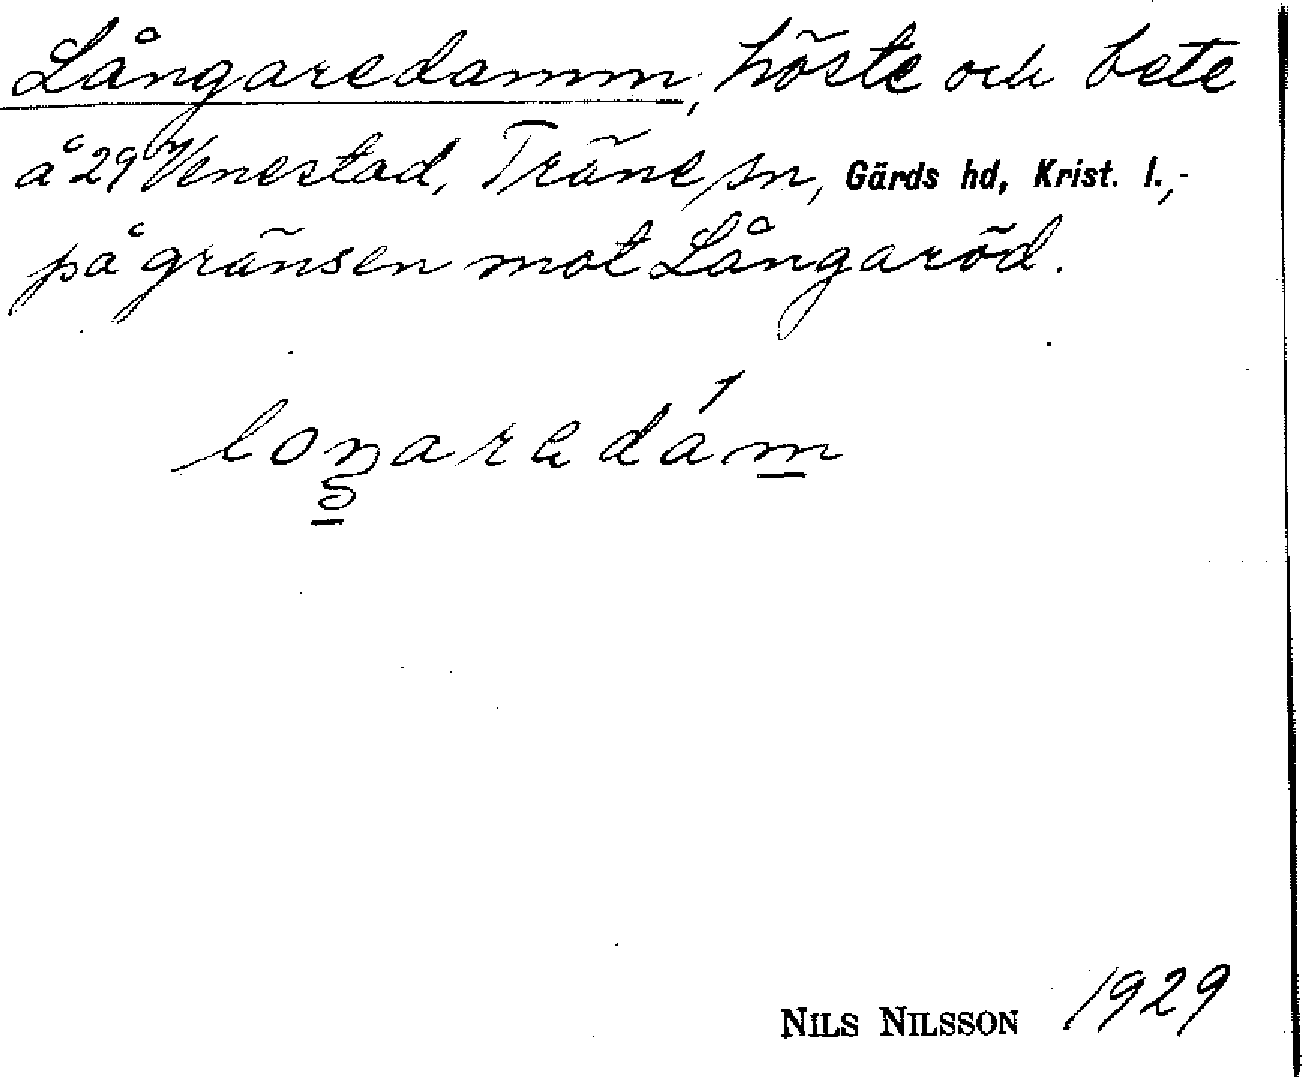 Långaredamm, höste och bete
å 29 Venestad, Träne sn, Gärds hd, Krist. l.,-
på gränsen mot Långaröd.
loŋaradám
NILS NILSSON 1929